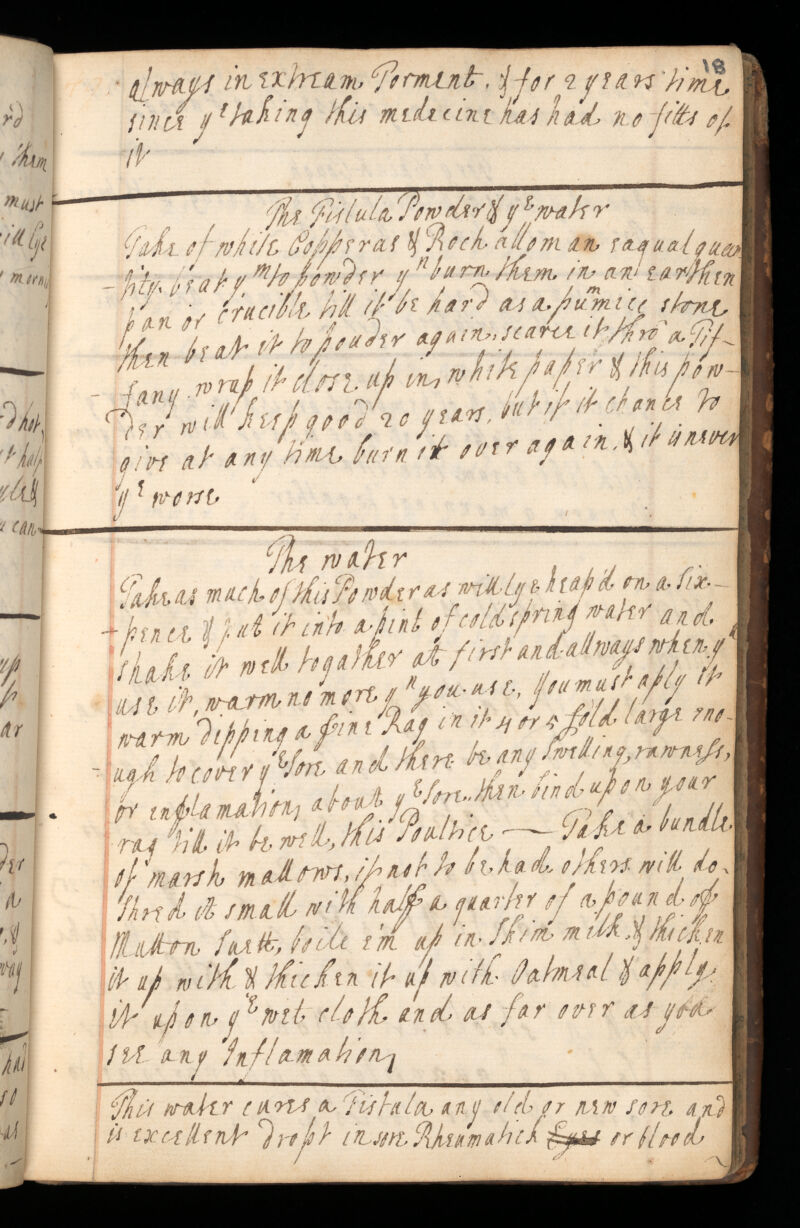 18
always in extream Torment. & for 2 years time
since yᵉ taking this medecine has had no fitts of
it
The Fistula Powder & yᵉ water
Take of white Copperas & Roch allom an eaqual quan
tity beat yᵐ to powder yⁿ burn them in an earthen
pan or crucible till it be hard as a pumice stone
then beat it to pouder again, searce it thro a Tif-
fany. wrap it close up in white paper & this pow-
der will keep good 20 years, but if it chance to
give at any time burn it over again, & it is never
yᵉ worse
The water
Take as much of this Powder as will lye heap'd on a Six-
pence & put it into a pint of cold spring water and
shake it well togather at first and allways when yᵘ
use it, warm no more yⁿ you use, you must aply it
warm dipping a fine Rag in it 4 or 5 fold large eno-
ugh to cover yᵉ Sore and there be any Swelling, rawness,
or enflamation, about yᵉ Sore, then bind upon your
rag till it be well, this Poultice — Take a bundle
of marsh mallows, if not to be had others will do,
Shred it small with half a quarter of a pound of
Mutton Suett, boile e'm up in Skim milk, & thicken
it up with & thicken it up with Oatmeal & apply
it upon yᵉ wet cloth and as far over as you
see any Inflamation
This water cures a Fistula any old or new sore and
is excellent dropt in sore Rheumatick Eyes or blood
r'd
them
must
ill lye
morn
d hot,
t half
&
can
up
ar
der
a
&
way
had
so
as